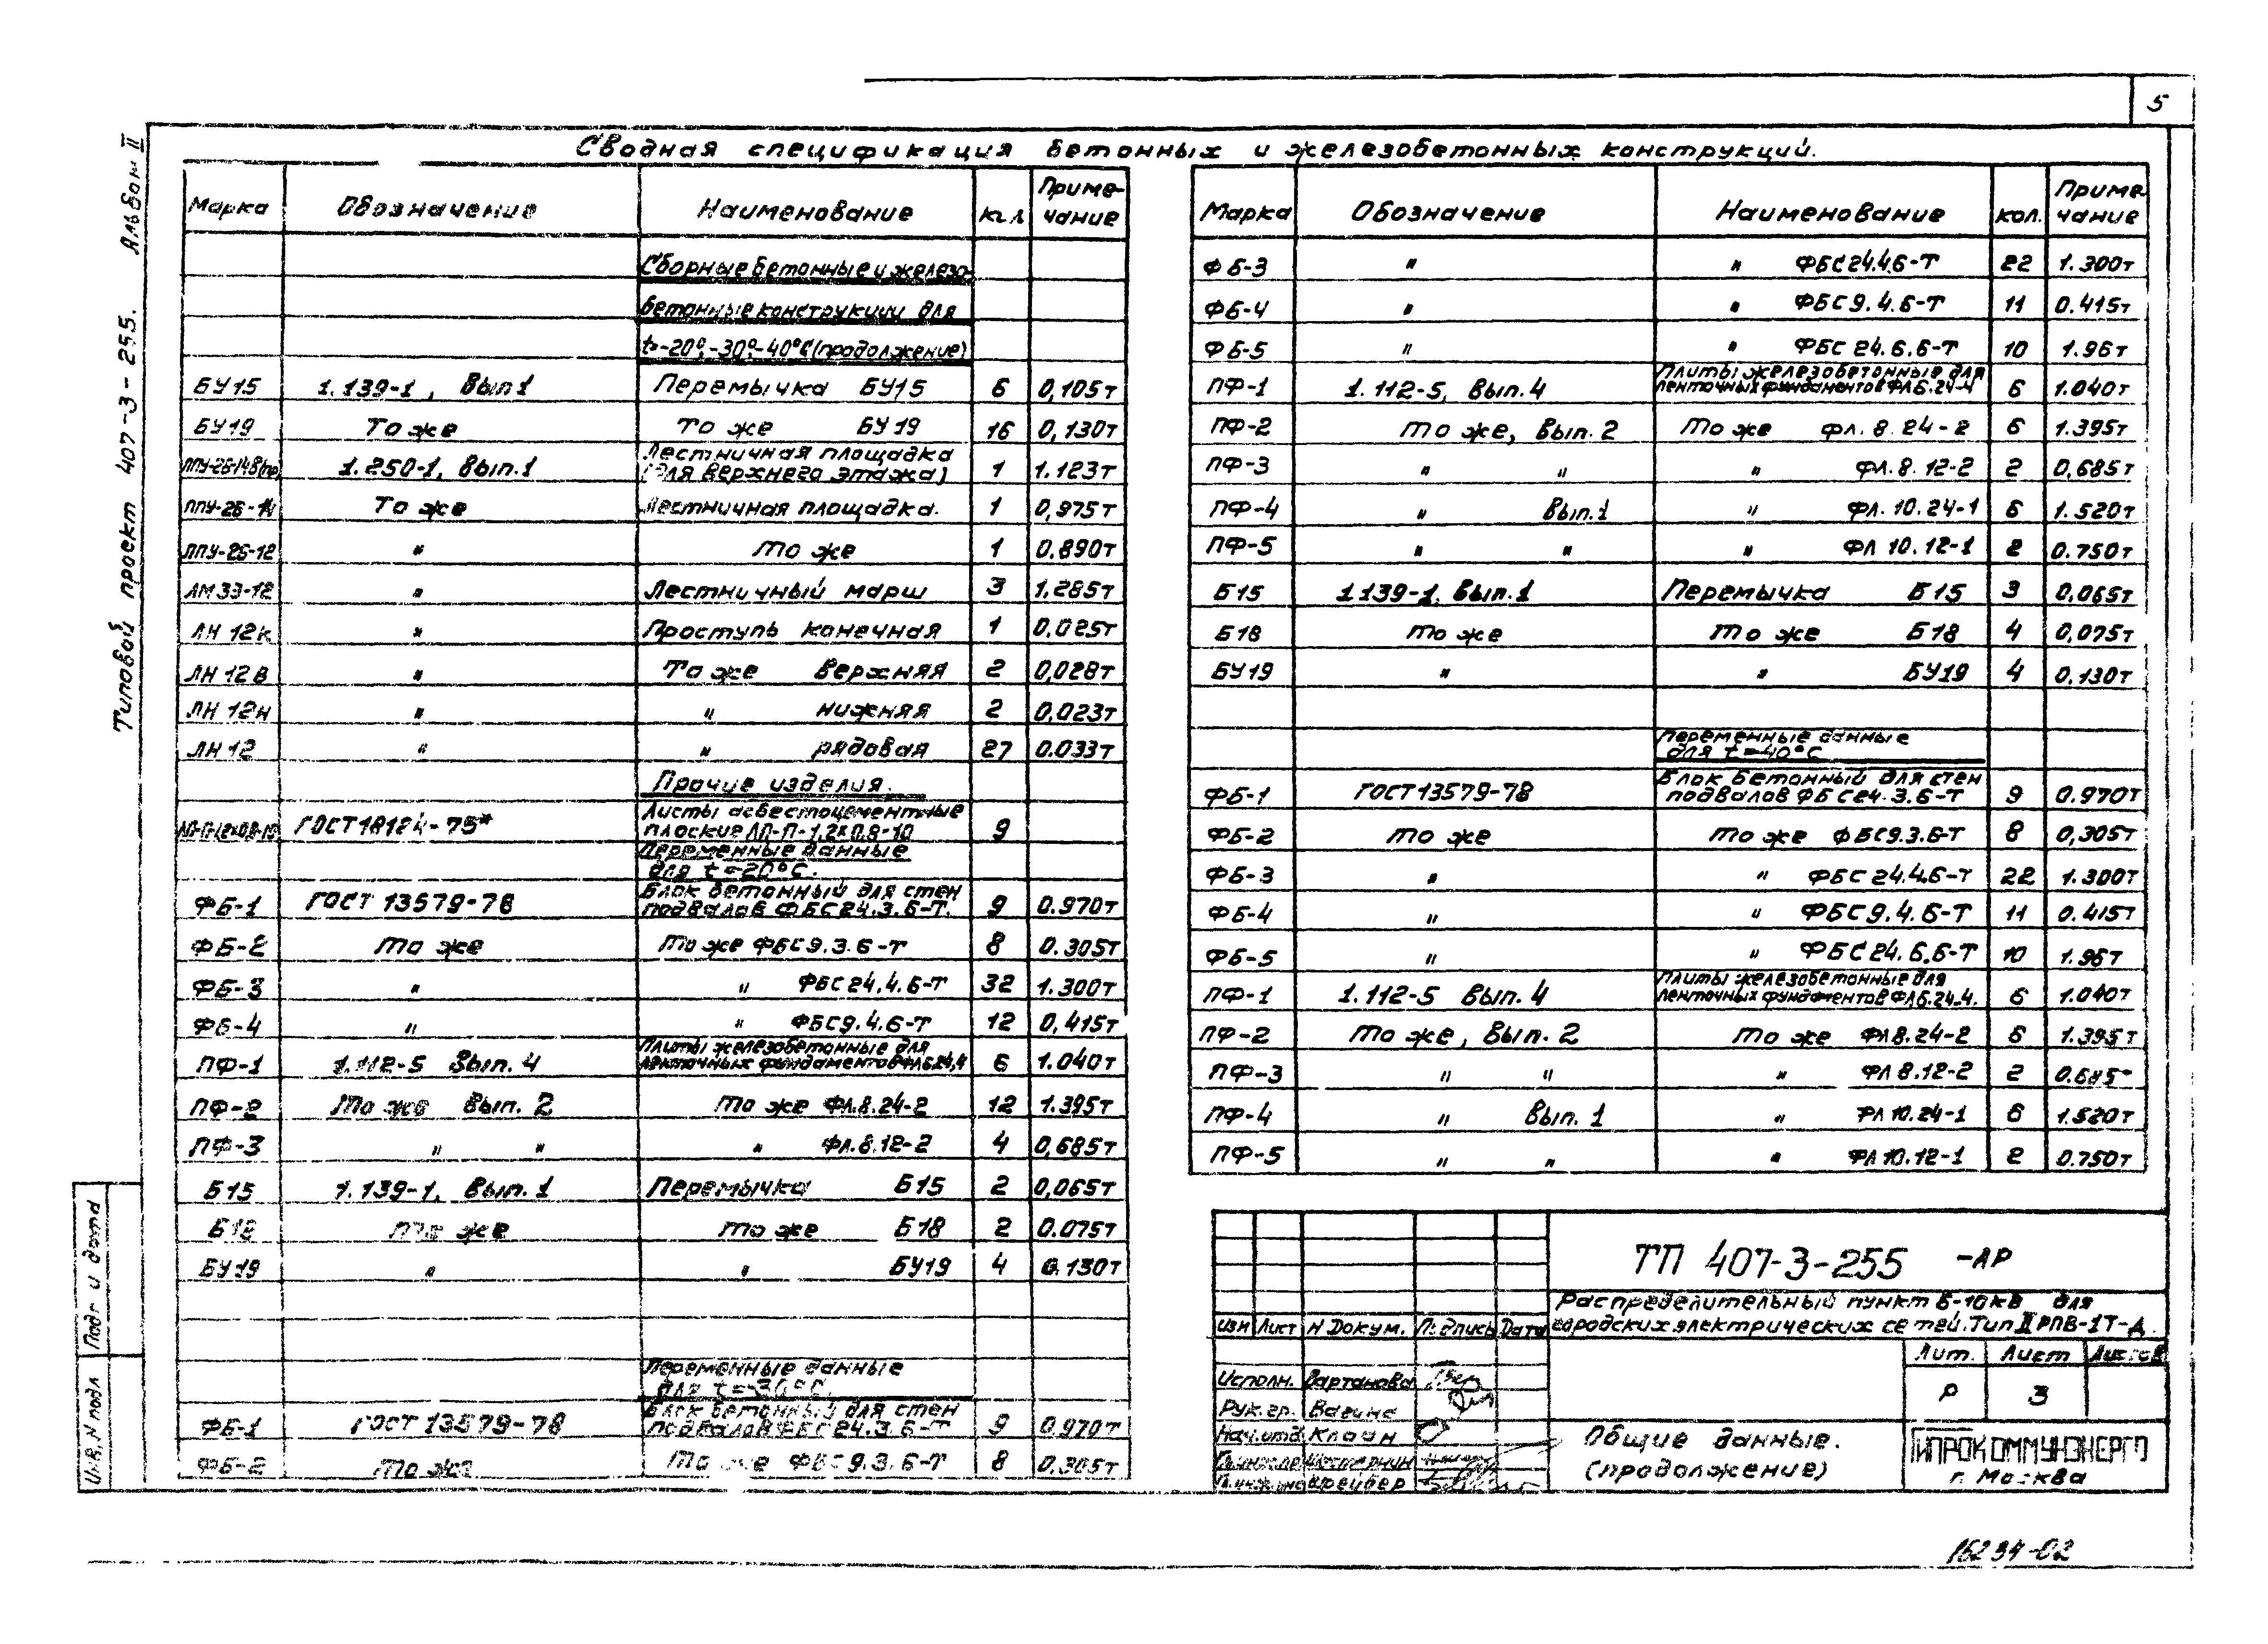 5
Сводная спецификация бетонных и железобетонных конструкций.
Типовой проект 407-3-255. Альбом II
Марка Обозначение Наименование кол Примечание
Сборные бетонные и железо-
бетонные конструкции для
t=-20°,-30°,-40°С (продолжение)
БУ15 1.139-1, Вып1 Перемычка БУ15 6 0,105т
БУ19 То же То же БУ19 16 0,130т
ЛПУ-26-14В(пр) 1.250-1, Вып.1 Лестничная площадка (для верхнего этажа) 1 1.123т
ЛПУ-26-14 То же Лестничная площадка. 1 0,975т
ЛПУ-26-12 " то же 1 0.890т
ЛМ33-12 " Лестничный марш 3 1.285т
ЛН 12к " Проступь конечная 1 0.025т
ЛН 12В " То же верхняя 2 0,028т
ЛН 12н " " нижняя 2 0,023т
ЛН 12 " " рядовая 27 0.033т
Прочие изделия.
ЛП-П-1,2х0,8-10 ГОСТ18124-75* Листы асбестоцементные плоские ЛП-П-1,2х0,8-10 9
Переменные данные
для t=-20°С.
ФБ-1 ГОСТ 13579-78 Блок бетонный для стен подвалов ФБС24.3.6-Т. 9 0.970т
ФБ-2 то же то же ФБС9.3.6-Т 8 0.305т
ФБ-3 " " ФБС24.4.6-Т 32 1.300т
ФБ-4 " " ФБС9.4.6-Т 12 0,415т
ПФ-1 1.112-5 Вып. 4 Плиты железобетонные для ленточных фундаментов ФЛ6.24,4 6 1.040т
ПФ-2 то же Вып. 2 то же ФЛ.8.24-2 12 1.395т
ПФ-3 " " " ФЛ.8.12-2 4 0,685т
Б15 1.139-1, Вып.1 Перемычка Б15 2 0,065т
Б18 то же то же Б18 2 0.075т
БУ19 " " БУ19 4 0.130т
Переменные данные
для t=-30°С.
ФБ-1 ГОСТ 13579-78 Блок бетонный для стен подвалов ФБС24.3.6-Т 9 0.970т
ФБ-2 то же то же ФБС9.3.6-Т 8 0.305т
Марка Обозначение Наименование кол. Примечание
ФБ-3 " " ФБС24.4.6-Т 22 1.300т
ФБ-4 " " ФБС9.4.6-Т 11 0.415т
ФБ-5 " " ФБС 24.6.6-Т 10 1.96т
ПФ-1 1.112-5, Вып.4 Плиты железобетонные для ленточных фундаментов ФЛ6.24-4 6 1.040т
ПФ-2 то же, Вып. 2 то же фл.8.24-2 6 1.395т
ПФ-3 " " " ФЛ.8.12-2 2 0,685т
ПФ-4 " Вып.1 " ФЛ.10.24-1 6 1.520т
ПФ-5 " " " ФЛ 10.12-1 2 0.750т
Б15 1.139-1, Вып.1 Перемычка Б15 3 0,065т
Б18 то же то же Б18 4 0,075т
БУ19 " " БУ19 4 0.130т
Переменные данные
для t=-40°С
ФБ-1 ГОСТ13579-78 Блок бетонный для стен подвалов ФБС24.3.6-Т 9 0.970т
ФБ-2 то же то же ФБС9.3.6-Т 8 0,305т
ФБ-3 " " ФБС24.4.6-Т 22 1.300т
ФБ-4 " " ФБС9.4.6-Т 11 0.415т
ФБ-5 " " ФБС24.6.6-Т 10 1.96т
ПФ-1 1.112-5 Вып. 4 Плиты железобетонные для ленточных фундаментов ФЛ6.24-4. 6 1.040т
ПФ-2 то же, Вып. 2 то же ФЛ8.24-2 6 1.395т
ПФ-3 " " " ФЛ8.12-2 2 0.685т
ПФ-4 " Вып. 1 " ФЛ10.24-1 6 1.520т
ПФ-5 " " " ФЛ10.12-1 2 0.750т
ТП 407-3-255 -АР
Распределительный пункт 6-10кВ для
городских электрических сетей. Тип II РПВ-1Т-Д.
Изм Лист N Докум. Подпись Дата
Лит. Лист Листов
Р 3
Исполн. Вартанова
Рук.гр. Вагина
Нач.отд. Клоин
Общие данные.
(продолжение)
ГИПРОКОММУНЭНЕРГО
г. Москва
Подп и дата
Инв, N подл
16234-02